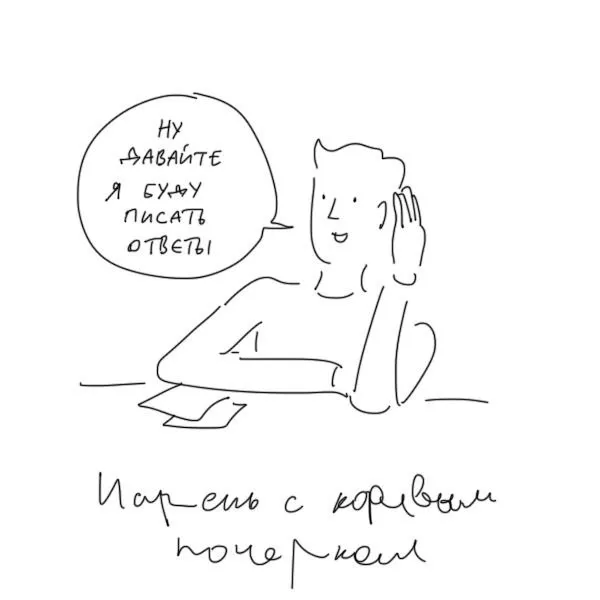 НУ
ДАВАЙТЕ
Я БУДУ
ПИСАТЬ
ОТВЕТЫ
Парень с корявым
почерком